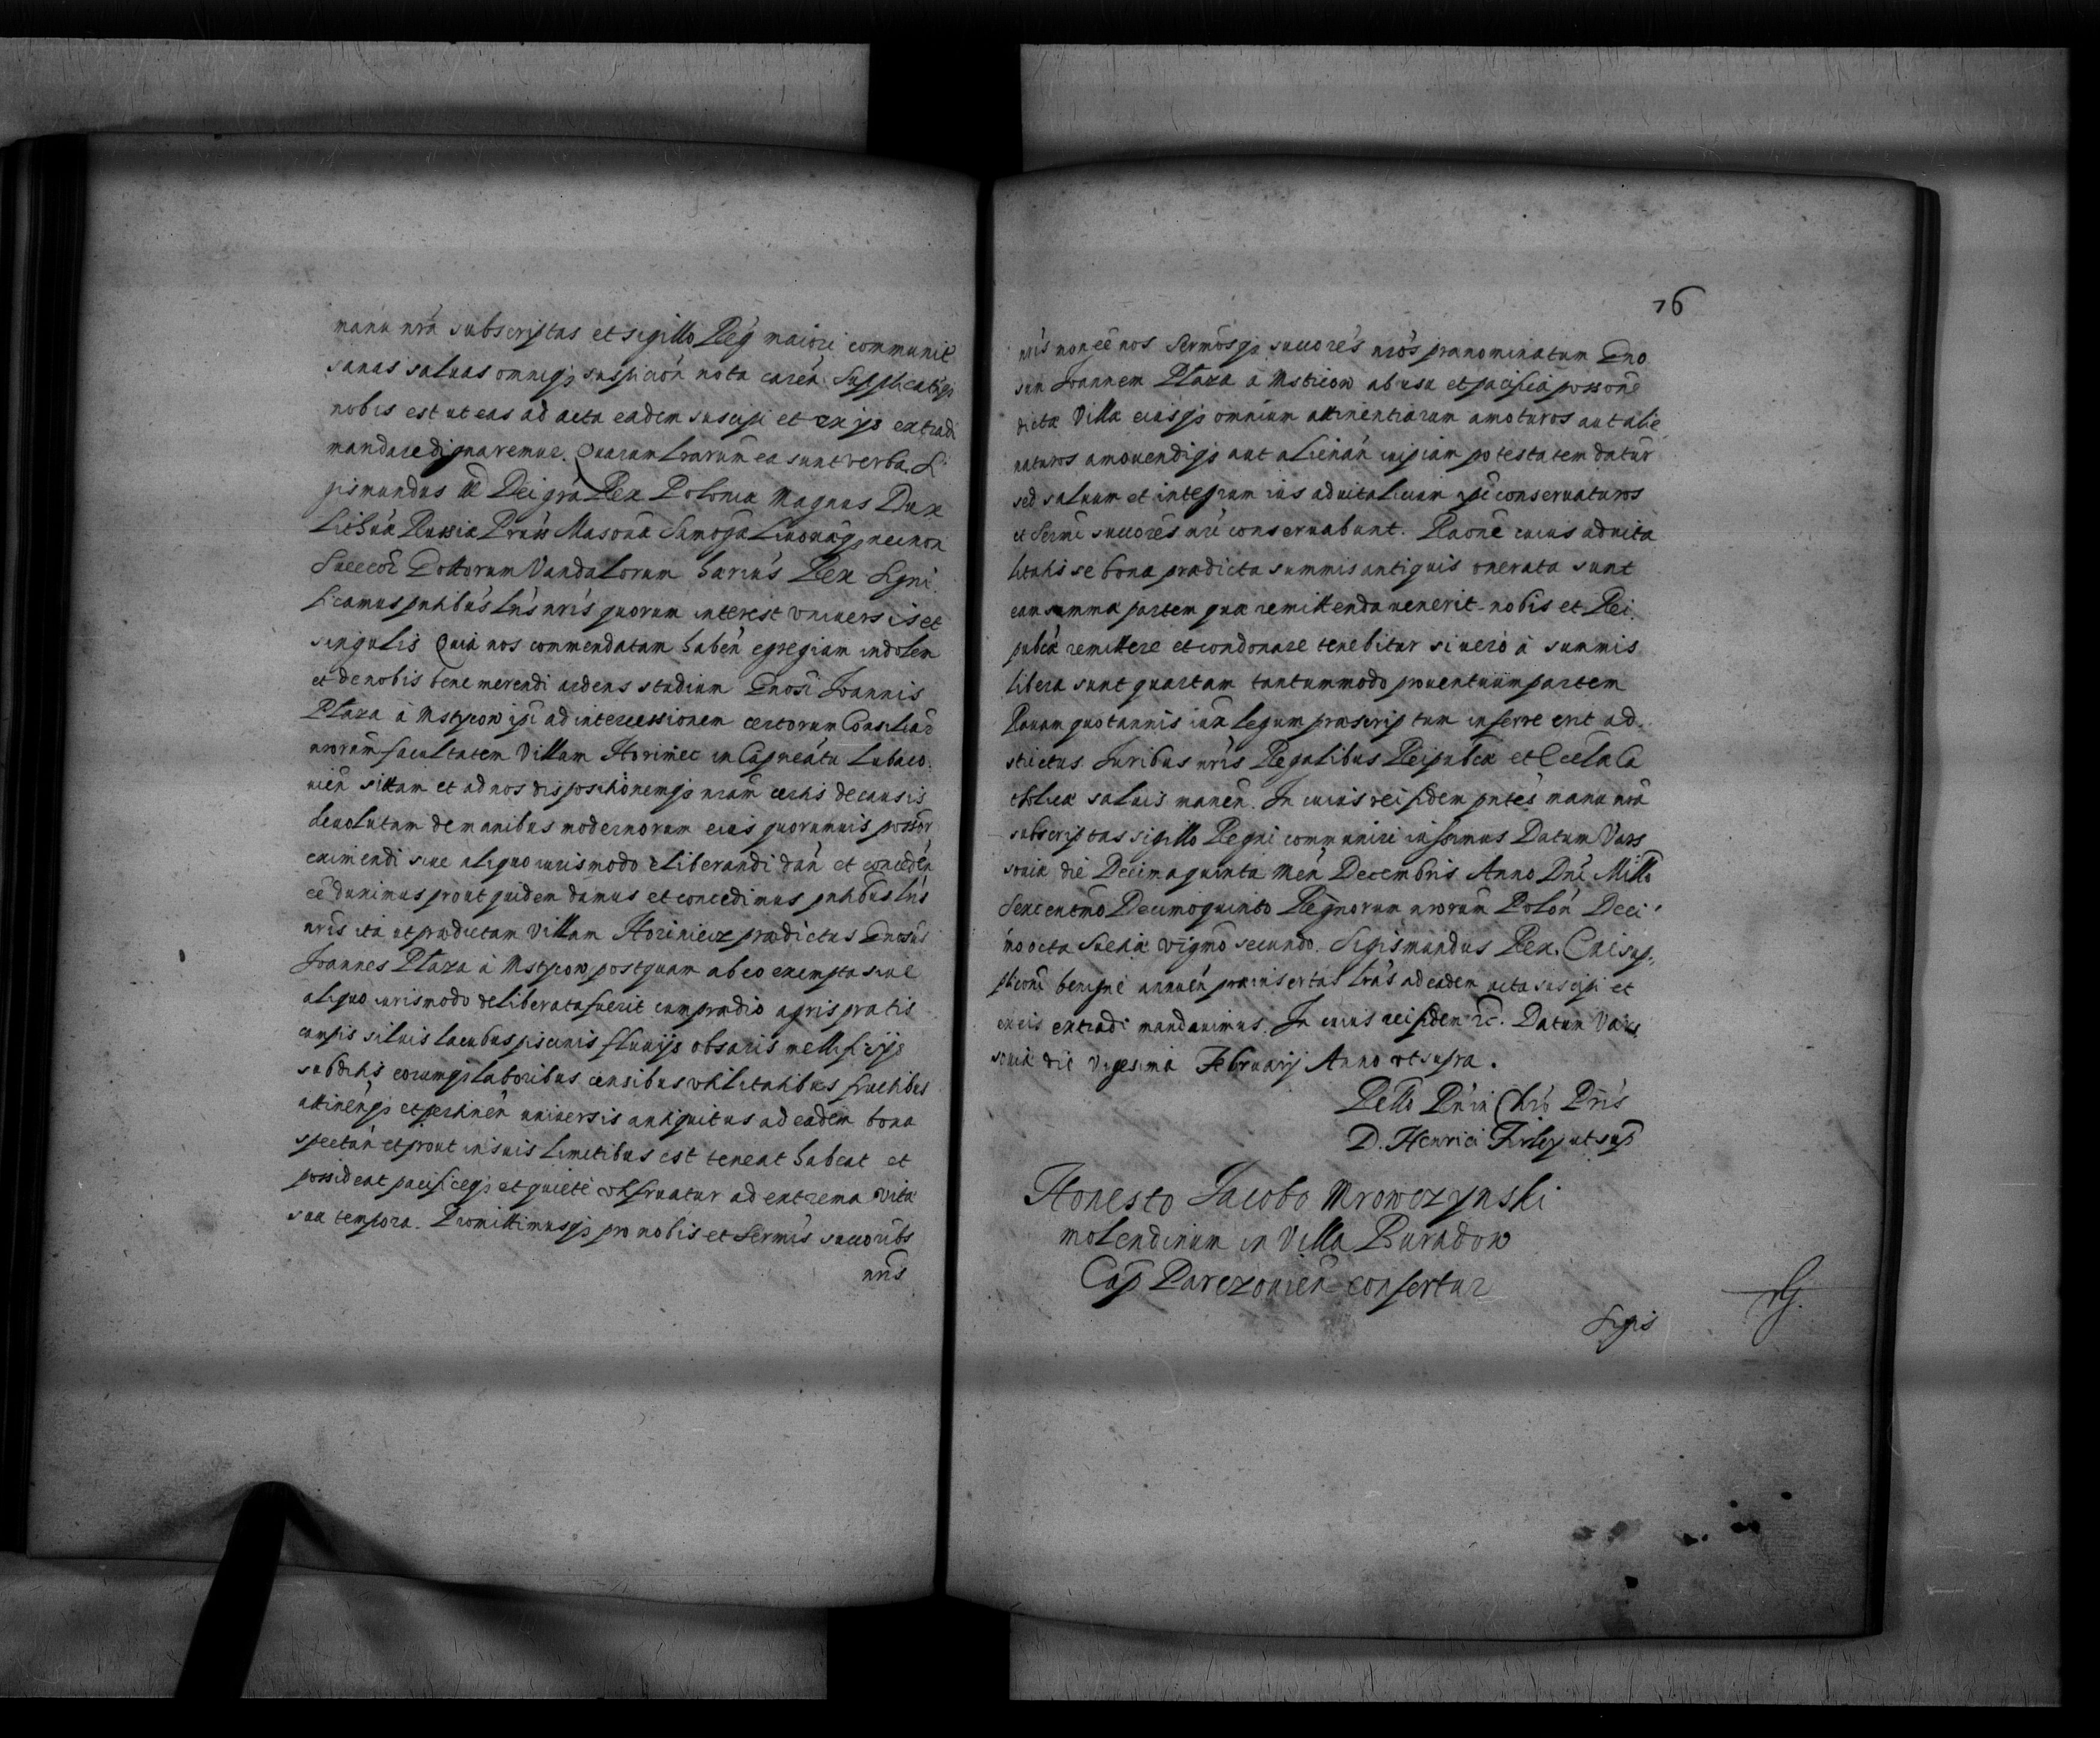 manu nrã subscriptas et sigillo Reg maiori communit
sanas saluas omniq; suspicion nota caren. Supplicatuq;
nobis est ut eas ad acta eadem suscipi et ex ijs extradi
mandare dignaremur. Quarum lrarum ea sunt verba. Si
gismundus III Dei gra Rex Poloniæ Magnus Dux
Lithua Russiæ Pruss Masouæ Samogæ Liuonæq; necnon
Suecor Gottorum Vandalorum hærius Rex Signi
ficamus pntibus lris nris quorum interest vniuersis et
singulis Quia nos commendatam haben egregiam indolem
et de nobis bene merendi ardens studium Gnosi Joannis
Plaza à Mstyczow ipi ad intercessionem certorum Consiliar
nrorum facultatem Villam Horiniec in Capneatu Lubaczo
uien sittam et ad nos dispositionemq; nram certis de causis
deuolutam de manibus modernorum eius quorumuis possor
eximendi siue aliquo iurismodo eliberandi dan et conceden
ee duximus prout quidem damus et concedimus pntibus lris
nris ita ut prædictam Villam Horiniecz prædictus Gnosus
Joannes Plaza à Mstyczow, postquam ab eo exempta siue
aliquo iurismodo deliberata fuerit cum prædio agris pratis
campis siluis lacubus piscinis fluuijs obsaris mellificijs
subditis eorumq; laboribus censibus vtilitatibus fructibus
attinenq; et pertinen uniuersis antiquitus ad eadem bona
spectan et prout in suis limitibus est teneat habeat et
possideat pacificeq; et quiete vtfruatur ad extrema vitæ
suæ tempora. Promittimusq; pro nobis et Sermis succoribs
nris
76
nris non ee nos Sermosq; succores nros prænominatum Gno
sum Joannem Plaza à Msticzow ab usu et pacifica possone
dictæ Villæ eiusq; omnium attinentiarum amoturos aut alie
naturos amouendiq; aut alienan cuipiam potestatem datur
sed saluum et integrum ius aduitalicium ipi conseruaturos
et Sermi succores nri conseruabunt. Raone cuius aduita
litatis se bona prædicta summis antiquis onerata sunt
eam summæ partem quæ remittenda uenerit nobis et Rei
pubcæ remittere et condonare tenebitur si uero à summis
libera sunt quartam tantummodo prouentuum partem
Rauam quotannis iuxa legum præscriptum inferre erit ad
strictus. Juribus nris Regalibus Reipubcæ et Ecclæ Ca
tholicæ saluis manen. In cuius rei fidem pntes manu nra
subscriptas sigillo Regni communiri iussimus Datum Vars
souiæ die Decima quinta Men Decembris Anno Dni Millo
Sexcentmo Decimoquinto Regnorum nrorum Polon Deci
mo octa Sueciæ vigmo secundo. Sigismundus Rex. Cui sup
pliconi benigne annuen præinsertas lras ad eadem acta suscipi et
ex eis extradi mandauimus. In cuius rei fidem &c. Datum Vars
souiæ die Vigesima Februarij Anno vt supra.
Rello Rn in Chro Pris
D. Henrici Firley ut sup
Honesto Jacobo Mrowczynski
molendinum in Villa Buradow
Cap Parczouien confertur
Sigis